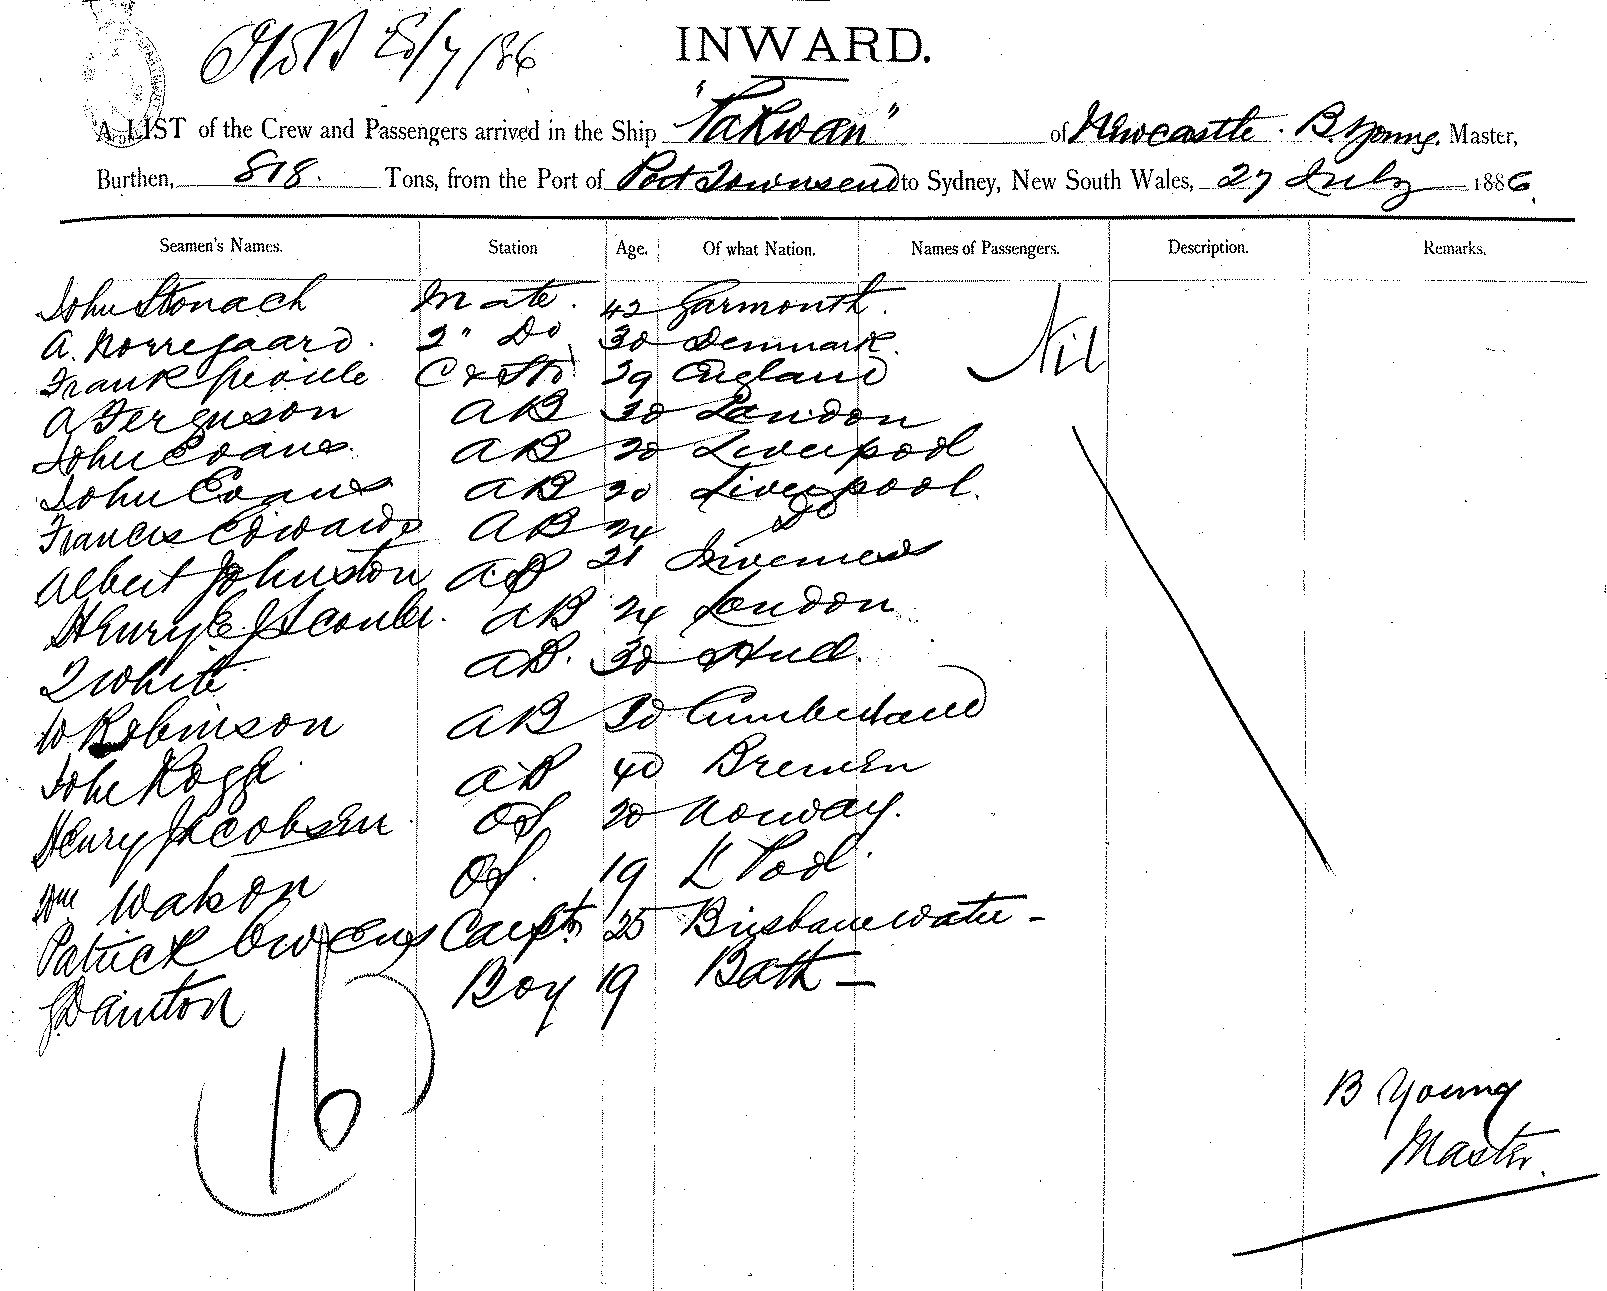 28/7/86
INWARD.
A LIST of the Crew and Passengers arrived in the Ship "Pakwan" of Newcastle. B. Young. Master,
Burthen, 818. Tons, from the Port of Port Townsend to Sydney, New South Wales, 27 July 1886.
Seamen's Names. Station Age. Of what Nation. Names of Passengers. Description. Remarks.
John Stonach Mate. 42 Garmonth. Nil
A. Norregaard. 2" Do 30 Denmark.
Frank C & Std 39 England
A Ferguson AB 30 London
John Evans. AB 20 Liverpool
John Evans AB 20 Liverpool.
Francis Edwards AB 24 Do
Albert Johnston AB 21 Inverness
Henry E. AB 24 London
White AB. 30 Hull.
W Robinson AB 30 Cumberland
John Rogge AB 40 Bremen
Henry Jacobsen OS 20 Norway.
Wm Watson OS. 19 L'Pool.
Patrick Owens Carptr 25 Brisbane water -
J Dainton Boy 19 Bath -
16
B Young
Master.